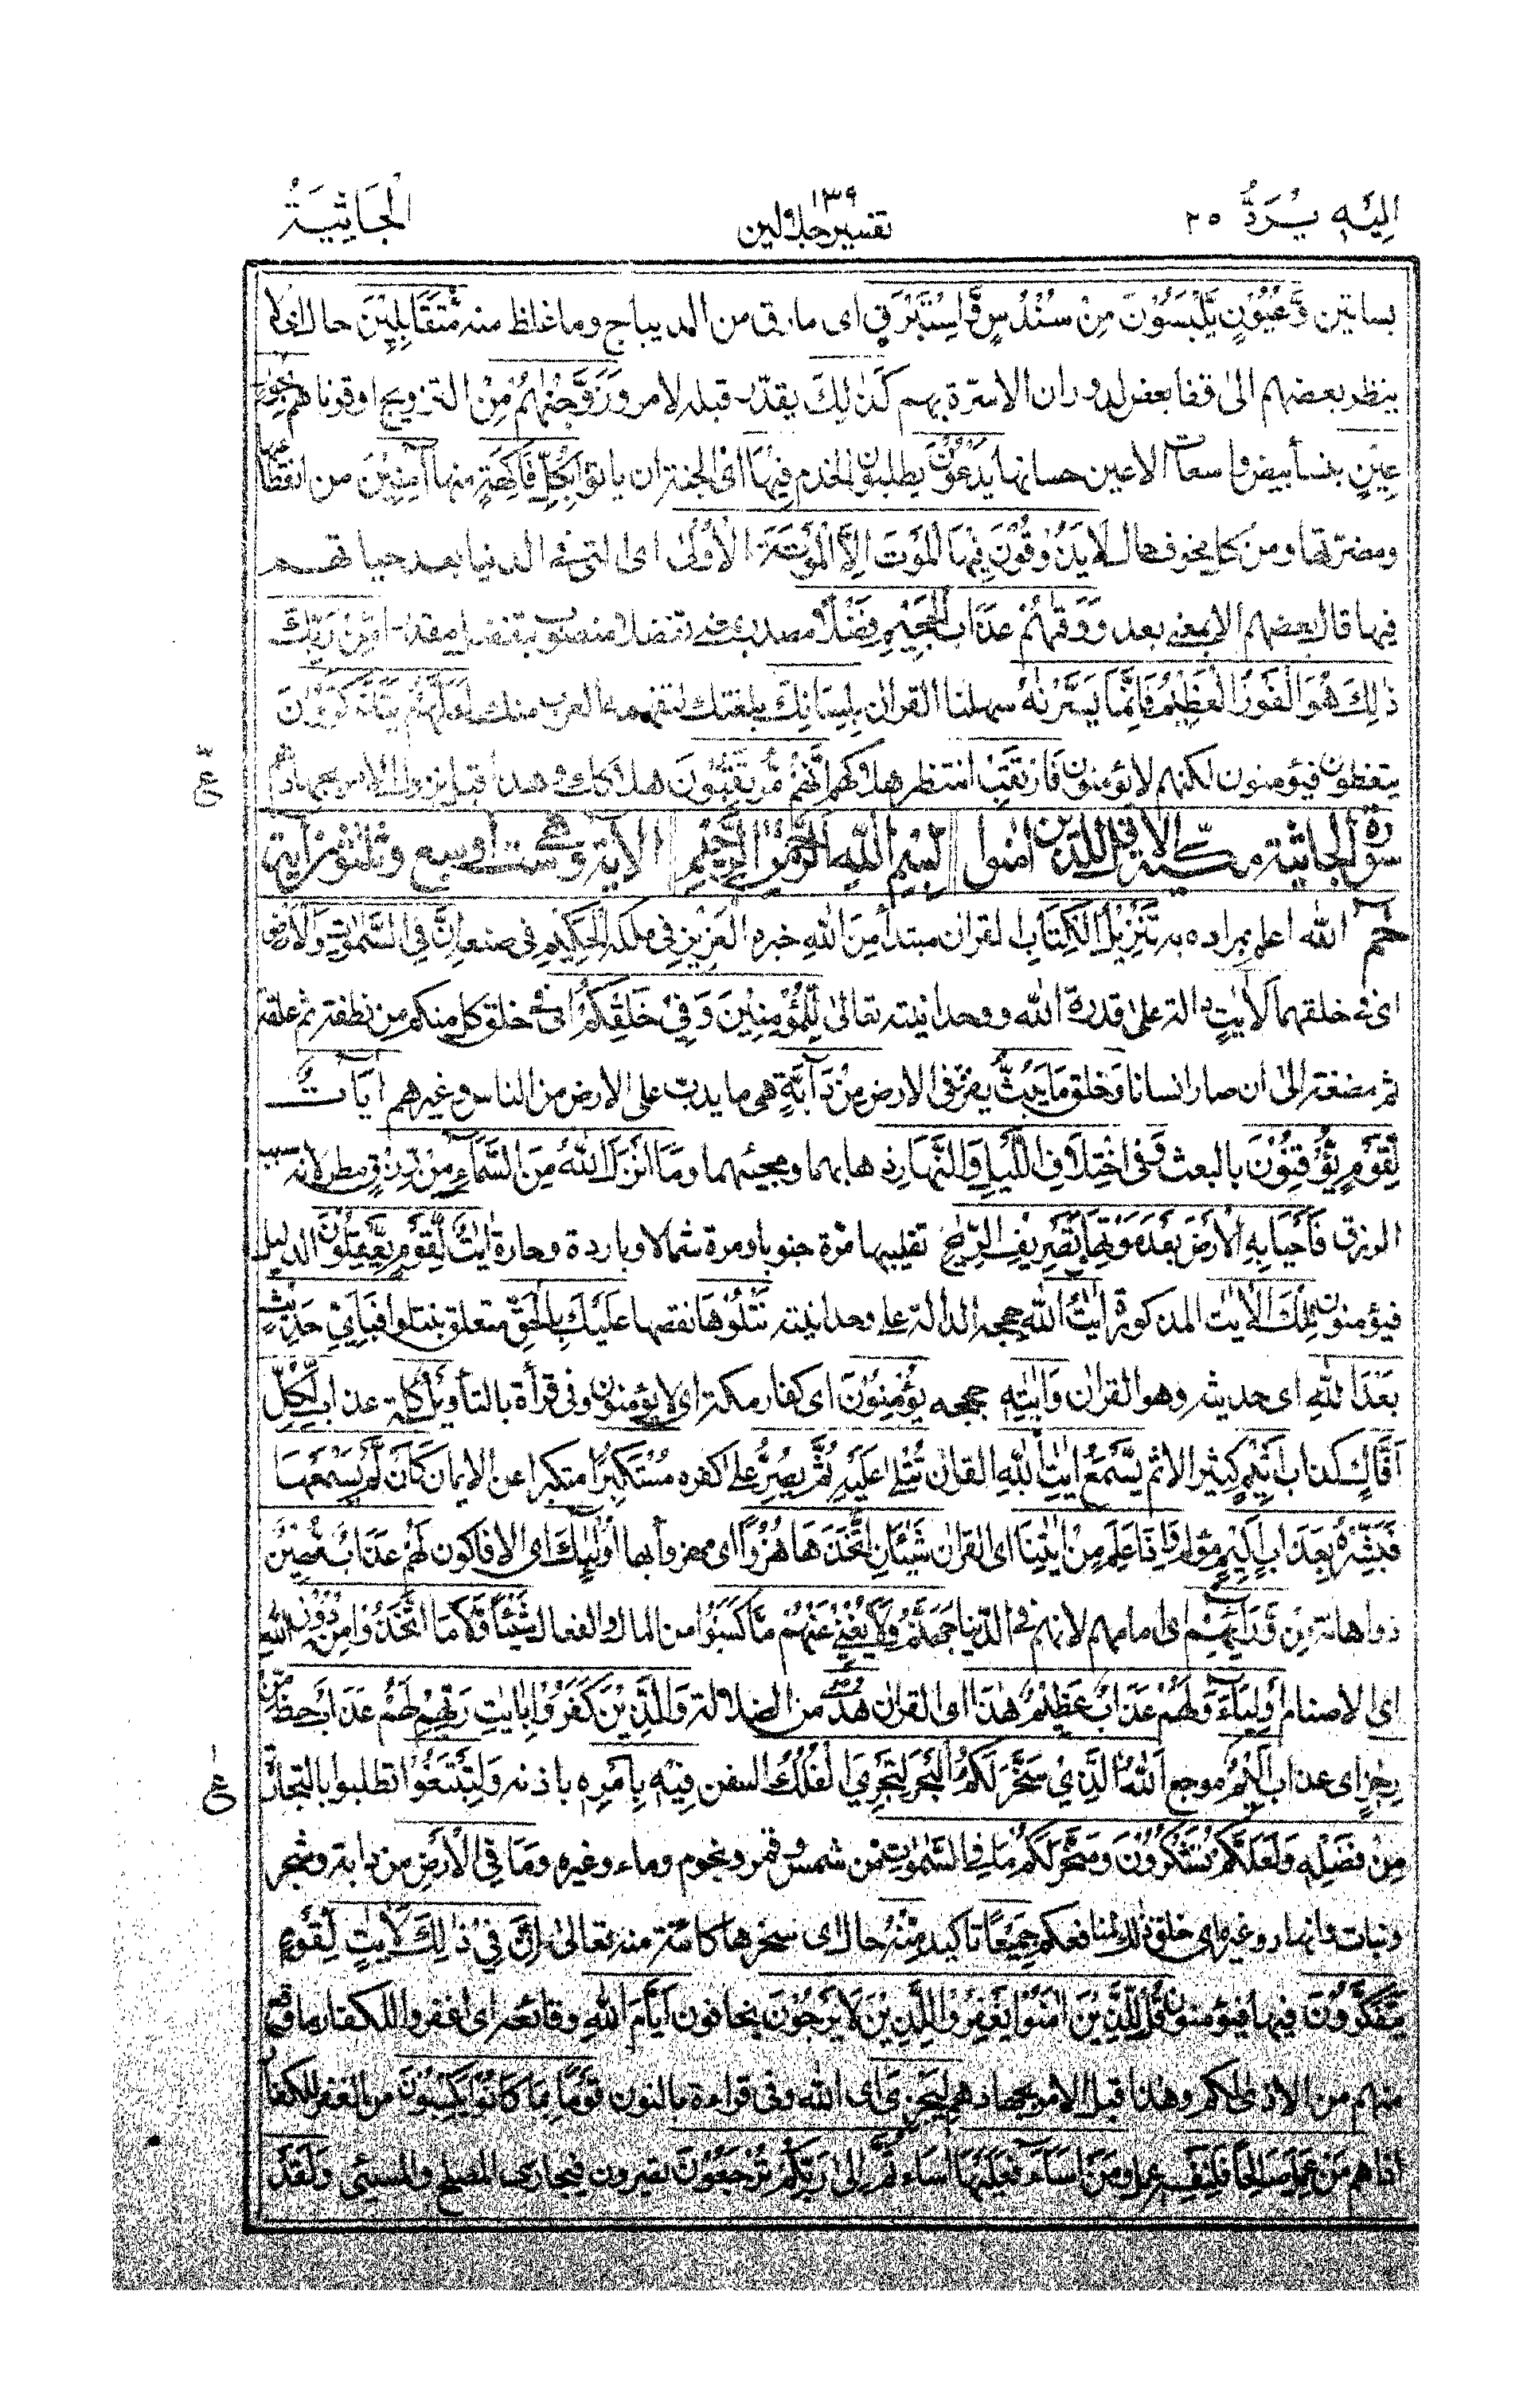 اليه يردّ ٢٥
١٣٩
تفسير جلالين
الجَاثِيَةُ
بساتين وَّعُيُوْنٍ يَّلْبَسُوْنَ مِنْ سُنْدُسٍ وَّاِسْتَبْرَقٍ اى مارق من الديباج وما غلظ منه مُّتَقٰبِلِيْنَ حال اى لا
ينظر بعضهم الى قفا بعض لدوران الاسرة بهم كَذٰلِكَ يقدّر قبله الامر وَزَوَّجْنٰهُمْ من التزويج او قرناهم بِحُوْرٍ
عِيْنٍ بنساء بيض واسعات الاعين حسانها يَدْعُوْنَ يطلبون الخدم فِيْهَا اى الجنة ان ياتوا بِكُلِّ فَاكِهَةٍ منها اٰمِنِيْنَ من انقطاعها
ومضرتها ومن كل مخوف حال لَا يَذُوْقُوْنَ فِيْهَا الْمَوْتَ اِلَّا الْمَوْتَةَ الْاُوْلٰى اى التى فى الدنيا بعد حياتهم
فيها قال بعضهم الا بمعنى بعد وَوَقٰهُمْ عَذَابَ الْجَحِيْمِ فَضْلًا مصدر بمعنى تفضلا منصوب بتفضل مقدرا مِّنْ رَّبِّكَ
ذٰلِكَ هُوَ الْفَوْزُ الْعَظِيْمُ فَاِنَّمَا يَسَّرْنٰهُ سهلنا القراٰن بِلِسَانِكَ بلغتك لتفهمه العرب منك لَعَلَّهُمْ يَتَذَكَّرُوْنَ
يتعظون فيؤمنون لكنهم لا يؤمنون فَارْتَقِبْ انتظر هلاكهم اِنَّهُمْ مُّرْتَقِبُوْنَ هلاكك وهذا قبل نزول الامر بجهادهم
ع
سورة الجاثية مكية الا قل للذين اٰمنوا بِسْمِ اللهِ الرَّحْمٰنِ الرَّحِيْمِ الاية وهى ست او سبع وثلثون اٰية
حٰمٓ الله اعلم بمراده به تَنْزِيْلُ الْكِتَابِ القراٰن مبتدأ مِنَ اللهِ خبره الْعَزِيْزِ فى ملكه الْحَكِيْمِ فى صنعه اِنَّ فِى السَّمٰوٰتِ وَالْاَرْضِ
اى فى خلقهما لَاٰيٰتٍ دالة على قدرة الله ووحدانيته تعالى لِّلْمُؤْمِنِيْنَ وَفِىْ خَلْقِكُمْ اى فى خلق كل منكم من نطفة ثم علقة
ثم مضغة الى ان صار انسانا وَ خلق مَا يَبُثُّ يفرق فى الارض مِنْ دَآبَّةٍ هى ما يدب على الارض من الناس وغيرهم اٰيَاتٌ
لِّقَوْمٍ يُّوْقِنُوْنَ بالبعث وَ فى اخْتِلَافِ الَّيْلِ وَالنَّهَارِ ذهابهما ومجيئهما وَمَا اَنْزَلَ اللهُ مِنَ السَّمَآءِ مِنْ رِّزْقٍ مطر لانه سبب
الرزق فَاَحْيَا بِهِ الْاَرْضَ بَعْدَ مَوْتِهَا وَتَصْرِيْفِ الرِّيٰحِ تقليبها مرّة جنوبا ومرة شمالا وباردة وحارة اٰيٰتٌ لِّقَوْمٍ يَّعْقِلُوْنَ الدليل
فيؤمنون تِلْكَ الاٰيٰت المذكورة اٰيٰتُ اللهِ حججه الدالة على وحدانيته نَتْلُوْهَا نقصها عَلَيْكَ بِالْحَقِّ متعلق بنتلوا فَبِاَىِّ حَدِيْثٍ
بَعْدَ اللهِ اى حديثه وهو القراٰن وَاٰيٰتِهٖ حججه يُؤْمِنُوْنَ اى كفار مكة اى لا يؤمنون وفى قرأة بالتاء وَيْلٌ كلمة عذاب لِّكُلِّ
اَفَّاكٍ كذاب اَثِيْمٍ كثير الاثم يَّسْمَعُ اٰيٰتِ اللهِ القراٰن تُتْلٰى عَلَيْهِ ثُمَّ يُصِرُّ على كفره مُسْتَكْبِرًا متكبرا عن الايمان كَاَنْ لَّمْ يَسْمَعْهَا
فَبَشِّرْهُ بِعَذَابٍ اَلِيْمٍ مؤلم وَاِذَا عَلِمَ مِنْ اٰيٰتِنَا اى القراٰن شَيْئَانِ اتَّخَذَهَا هُزُوًا اى مهزوأ بها اُولٰٓئِكَ اى الافاكون لَهُمْ عَذَابٌ مُّهِيْنٌ
ذو اهانة مِنْ وَّرَآئِهِمْ اى امامهم لانهم فى الدنيا جَهَنَّمُ وَلَا يُغْنِىْ عَنْهُمْ مَّا كَسَبُوْا من المال والفعال شَيْئًا وَّلَا مَا اتَّخَذُوْا مِنْ دُوْنِ اللهِ
اى الاصنام اَوْلِيَآءَ وَلَهُمْ عَذَابٌ عَظِيْمٌ هٰذَا اى القراٰن هُدًى من الضلالة وَالَّذِيْنَ كَفَرُوْا بِاٰيٰتِ رَبِّهِمْ لَهُمْ عَذَابٌ حظ مِّنْ
رِّجْزٍ اى عذاب اَلِيْمٌ موجع اَللهُ الَّذِىْ سَخَّرَ لَكُمُ الْبَحْرَ لِتَجْرِىَ الْفُلْكُ السفن فِيْهِ بِاَمْرِهٖ باذنه وَلِتَبْتَغُوْا تطلبوا بالتجارة
ع
مِنْ فَضْلِهٖ وَلَعَلَّكُمْ تَشْكُرُوْنَ وَسَخَّرَ لَكُمْ مَّا فِى السَّمٰوٰتِ من شمس وقمر ونجوم وماء وغيره وَمَا فِى الْاَرْضِ من دابة وشجر
ونبات وانهار وغيره اى خلق ذلك لمنافعكم جَمِيْعًا تاكيد مِّنْهُ حال اى سخرها كائنة منه تعالى اِنَّ فِىْ ذٰلِكَ لَاٰيٰتٍ لِّقَوْمٍ
يَّتَفَكَّرُوْنَ فيها فيؤمنون قُلْ لِّلَّذِيْنَ اٰمَنُوْا يَغْفِرُوْا لِلَّذِيْنَ لَا يَرْجُوْنَ يخافون اَيَّامَ اللهِ وقائعه اى اغفروا للكفار ما وقع
منهم من الاذى لكم وهذا قبل الامر بجهادهم لِيَجْزِىَ اى الله وفى قراءة بالنون قَوْمًا بِمَا كَانُوْا يَكْسِبُوْنَ من الغفر للكفار
اذاهم مَنْ عَمِلَ صَالِحًا فَلِنَفْسِهٖ عمل وَمَنْ اَسَآءَ فَعَلَيْهَا اساء ثُمَّ اِلٰى رَبِّكُمْ تُرْجَعُوْنَ تصيرون فيجازى المصلح والمسيئ وَلَقَدْ